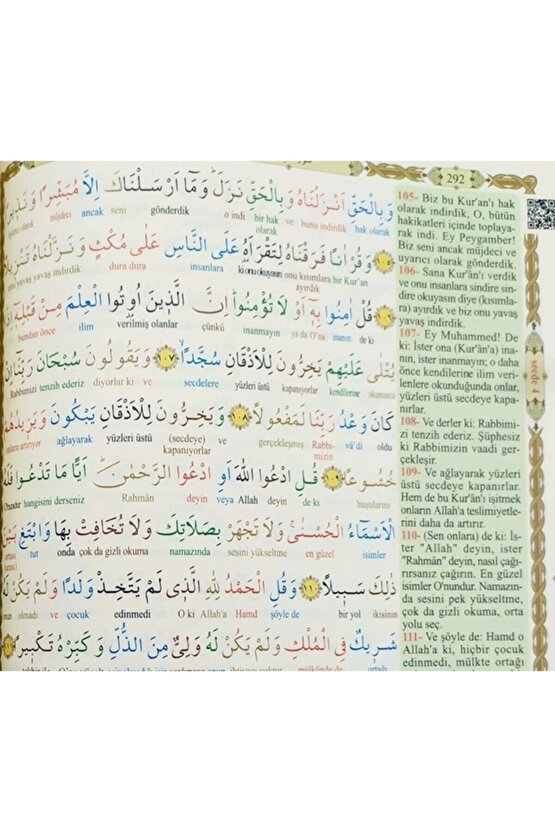 292
وَبِالْحَقِّ اَنْزَلْنَاهُ وَبِالْحَقِّ نَزَلَۜ وَمَٓا اَرْسَلْنَاكَ اِلَّا مُبَشِّرًا وَنَذ۪يرًاۢ
hak olarak bunu indirdik ve bir hak olarak o indi gönderdik seni ancak müjdeci
﴿١٠٥﴾ وَقُرْاٰنًا فَرَقْنَاهُ لِتَقْرَاَهُ عَلَى النَّاسِ عَلٰى مُكْثٍ وَنَزَّلْنَاهُ
bir Kur'an onu kısımlara ayırdık ki onu okuyasın insanlara dura dura yavaş yavaş indirdik
﴿١٠٦﴾ قُلْ اٰمِنُوا بِه۪ٓ اَوْ لَا تُؤْمِنُواۜ اِنَّ الَّذ۪ينَ اُو۫تُوا الْعِلْمَ مِنْ قَبْلِه۪ٓ اِذَا
de ki inanın ona ya da inanmayın çünkü verilmiş olanlar ilim bundan önce
يُتْلٰى عَلَيْهِمْ يَخِرُّونَ لِلْاَذْقَانِ سُجَّدًاۙ ﴿١٠٧﴾ وَيَقُولُونَ سُبْحَانَ رَبِّنَٓا اِنْ
okununca kendilerine kapanıyorlar yüzleri üstü secdelere ve diyorlar ki tenzih ederiz Rabbimizi
كَانَ وَعْدُ رَبِّنَا لَمَفْعُولًا ﴿١٠٨﴾ وَيَخِرُّونَ لِلْاَذْقَانِ يَبْكُونَ وَيَز۪يدُهُمْ
oldu va'di Rabbimizin gerçekleşmiş ve (secdeye) kapanıyorlar yüzleri üstü ağlayarak
خُشُوعًا ﴿١٠٩﴾ قُلِ ادْعُوا اللّٰهَ اَوِ ادْعُوا الرَّحْمٰنَۜ اَيًّا مَا تَدْعُوا فَلَهُ
huşularını de ki Allah deyin veya deyin Rahmân hangisini derseniz
الْاَسْمَٓاءُ الْحُسْنٰىۚ وَلَا تَجْهَرْ بِصَلَاتِكَ وَلَا تُخَافِتْ بِهَا وَابْتَغِ بَيْنَ
isimler en güzel sesini yükseltme namazında çok da gizli okuma onda tut
ذٰلِكَ سَب۪يلًا ﴿١١٠﴾ وَقُلِ الْحَمْدُ لِلّٰهِ الَّذ۪ي لَمْ يَتَّخِذْ وَلَدًا وَلَمْ يَكُنْ لَهُ
ikisinin bir yol şöyle de Hamd Allah'a O ki edinmedi çocuk ve olmadı
شَر۪يكٌ فِي الْمُلْكِ وَلَمْ يَكُنْ لَهُ وَلِيٌّ مِنَ الذُّلِّ وَكَبِّرْهُ تَكْب۪يرًا
105- Biz bu Kur'an'ı hak
olarak indirdik. O, bütün
hakikatleri içinde toplaya-
rak indi. Ey Peygamber!
Biz seni ancak müjdeci ve
uyarıcı olarak gönderdik.
106- Sana Kur'ân'ı verdik
ve onu insanlara sindire sin-
dire okuyasın diye (kısımla-
ra) ayırdık ve biz onu yavaş
yavaş indirdik.
107- Ey Muhammed! De
ki: İster ona (Kur'ân'a) ina-
nın, ister inanmayın; o daha
önce kendilerine ilim veri-
lenlere okunduğunda onlar,
yüzleri üstü secdeye kapa-
nırlar.
108- Ve derler ki: Rabbimi-
zi tenzih ederiz. Şüphesiz
ki Rabbimizin vaadi ger-
çekleşir.
109- Ve ağlayarak yüzleri
üstü secdeye kapanırlar.
Hem de bu Kur'ân'ı işitmek
onların Allah'a teslimiyetle-
rini daha da artırır.
110- (Sen onlara) de ki: İs-
ter "Allah" deyin, ister
"Rahmân" deyin, nasıl çağı-
rırsanız çağırın. En güzel
isimler O'nundur. Namazın-
da sesini pek yükseltme,
çok da gizli okuma, orta
yolu seç.
111- Ve şöyle de: Hamd o
Allah'a ki, hiçbir çocuk
edinmedi, mülkte ortağı
secde 4